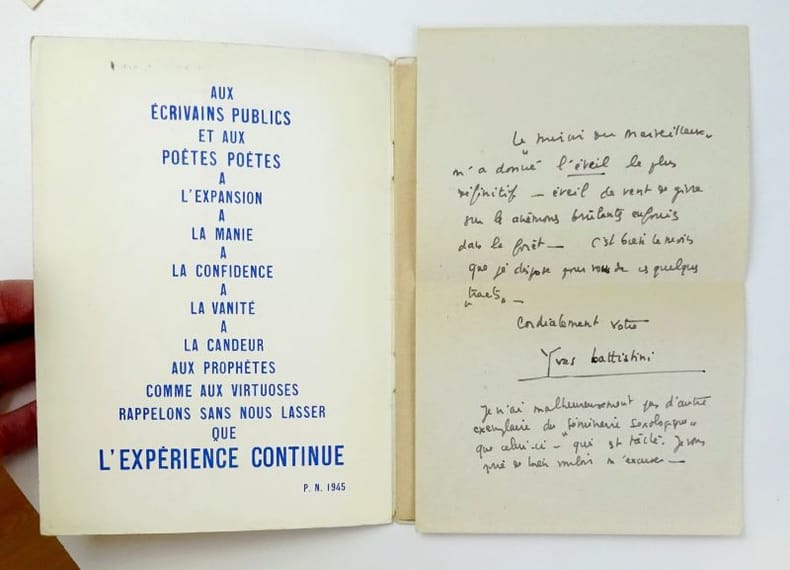 AUX
ÉCRIVAINS PUBLICS
ET AUX
POÈTES POÈTES
A
L'EXPANSION
A
LA MANIE
A
LA CONFIDENCE
A
LA VANITÉ
A
LA CANDEUR
AUX PROPHÈTES
COMME AUX VIRTUOSES
RAPPELONS SANS NOUS LASSER
QUE
L'EXPÉRIENCE CONTINUE
P. N. 1945
Le "Miroir du Merveilleux"
m'a donné l'éveil le plus
définitif — éveil de vent de givre
sur les anémones brûlantes enfouis
dans la forêt — C'est bien le moins
que je dispose pour vous de ces quelques
"tracts" —
Cordialement votre
Yves battistini
Je n'ai malheureusement pas d'autre
exemplaire du que celui-ci — qui est tâché. Je vous
prie de bien vouloir m'excuser —